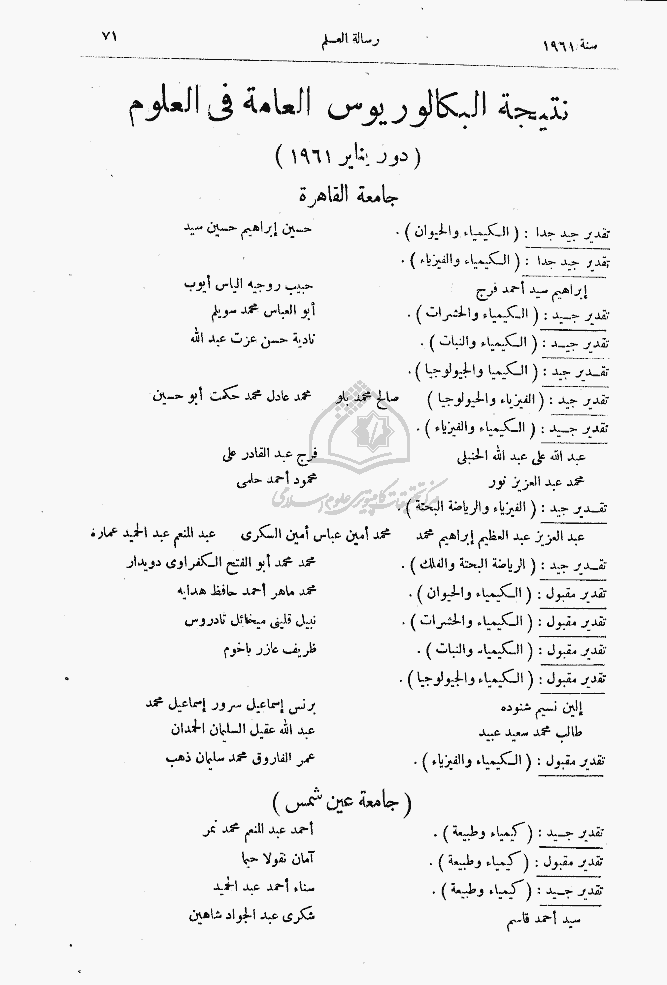 سنة ١٩٦١ رسالة العلم ٧١
نتيجة البكالوريوس العامة فى العلوم
( دور يناير ١٩٦١ )
جامعة القاهرة
تقدير جيد جدا : ( الكيمياء والحيوان ) . حسين إبراهيم حسين سيد
تقدير جيد جدا : ( الكيمياء والفيزياء ) .
إبراهيم سيد أحمد فرج حبيب روجيه الياس أيوب
تقدير جيد : ( الكيمياء والحشرات ) . أبو العباس محمد سويلم
تقدير جيد : ( الكيمياء والنبات ) . نادية حسن عزت عبد الله
تقدير جيد : ( الكيميا والجيولوجيا ) .
تقدير جيد : ( الفيزياء والجيولوجيا ) صالح محمد بلو محمد عادل محمد حكمت أبو حسين
تقدير جيد : ( الكيمياء والفيزياء ) .
عبد الله على عبد الله الحنبلى فرج عبد القادر على
محمد عبد العزيز نور محمود أحمد حلمى
مركز تحقيقات كامپيوترى علوم اسلامى
تقدير جيد : ( الفيزياء والرياضة البحتة ) .
عبد العزيز عبد العظيم إبراهيم محمد محمد أمين عباس أمين السكرى عبد المنعم عبد الحميد عماره
تقدير جيد : ( الرياضة البحتة والفلك ) . محمد محمد أبو الفتيح الكفراوى دويدار
تقدير مقبول : ( الكيمياء والحيوان ) . محمد ماهر أحمد حافظ هدايه
تقدير مقبول : ( الكيمياء والحشرات ) . نبيل قلينى ميخائل تادروس
تقدير مقبول : ( الكيمياء والنبات ) . ظريف عازر باخوم
تقدير مقبول : ( الكيمياء والجيولوجيا ) .
إلين نسيم شنوده برنس إسماعيل سرور إسماعيل محمد
طالب محمد سعيد عبيد عبد الله عقيل السليمان الحمدان
تقدير مقبول : ( الكيمياء والفيزياء ) . عمر الفاروق محمد سليمان ذهب
( جامعة عين شمس )
تقدير جيد : ( كيمياء وطبيعة ) . أحمد عبد المنعم محمد نمر
تقدير مقبول : ( كيمياء وطبيعة ) . آمان نقولا
تقدير جيد : ( كيمياء وطبيعة ) . سناء أحمد عبد الحميد
سيد أحمد قاسم شكرى عبد الجواد شاهين